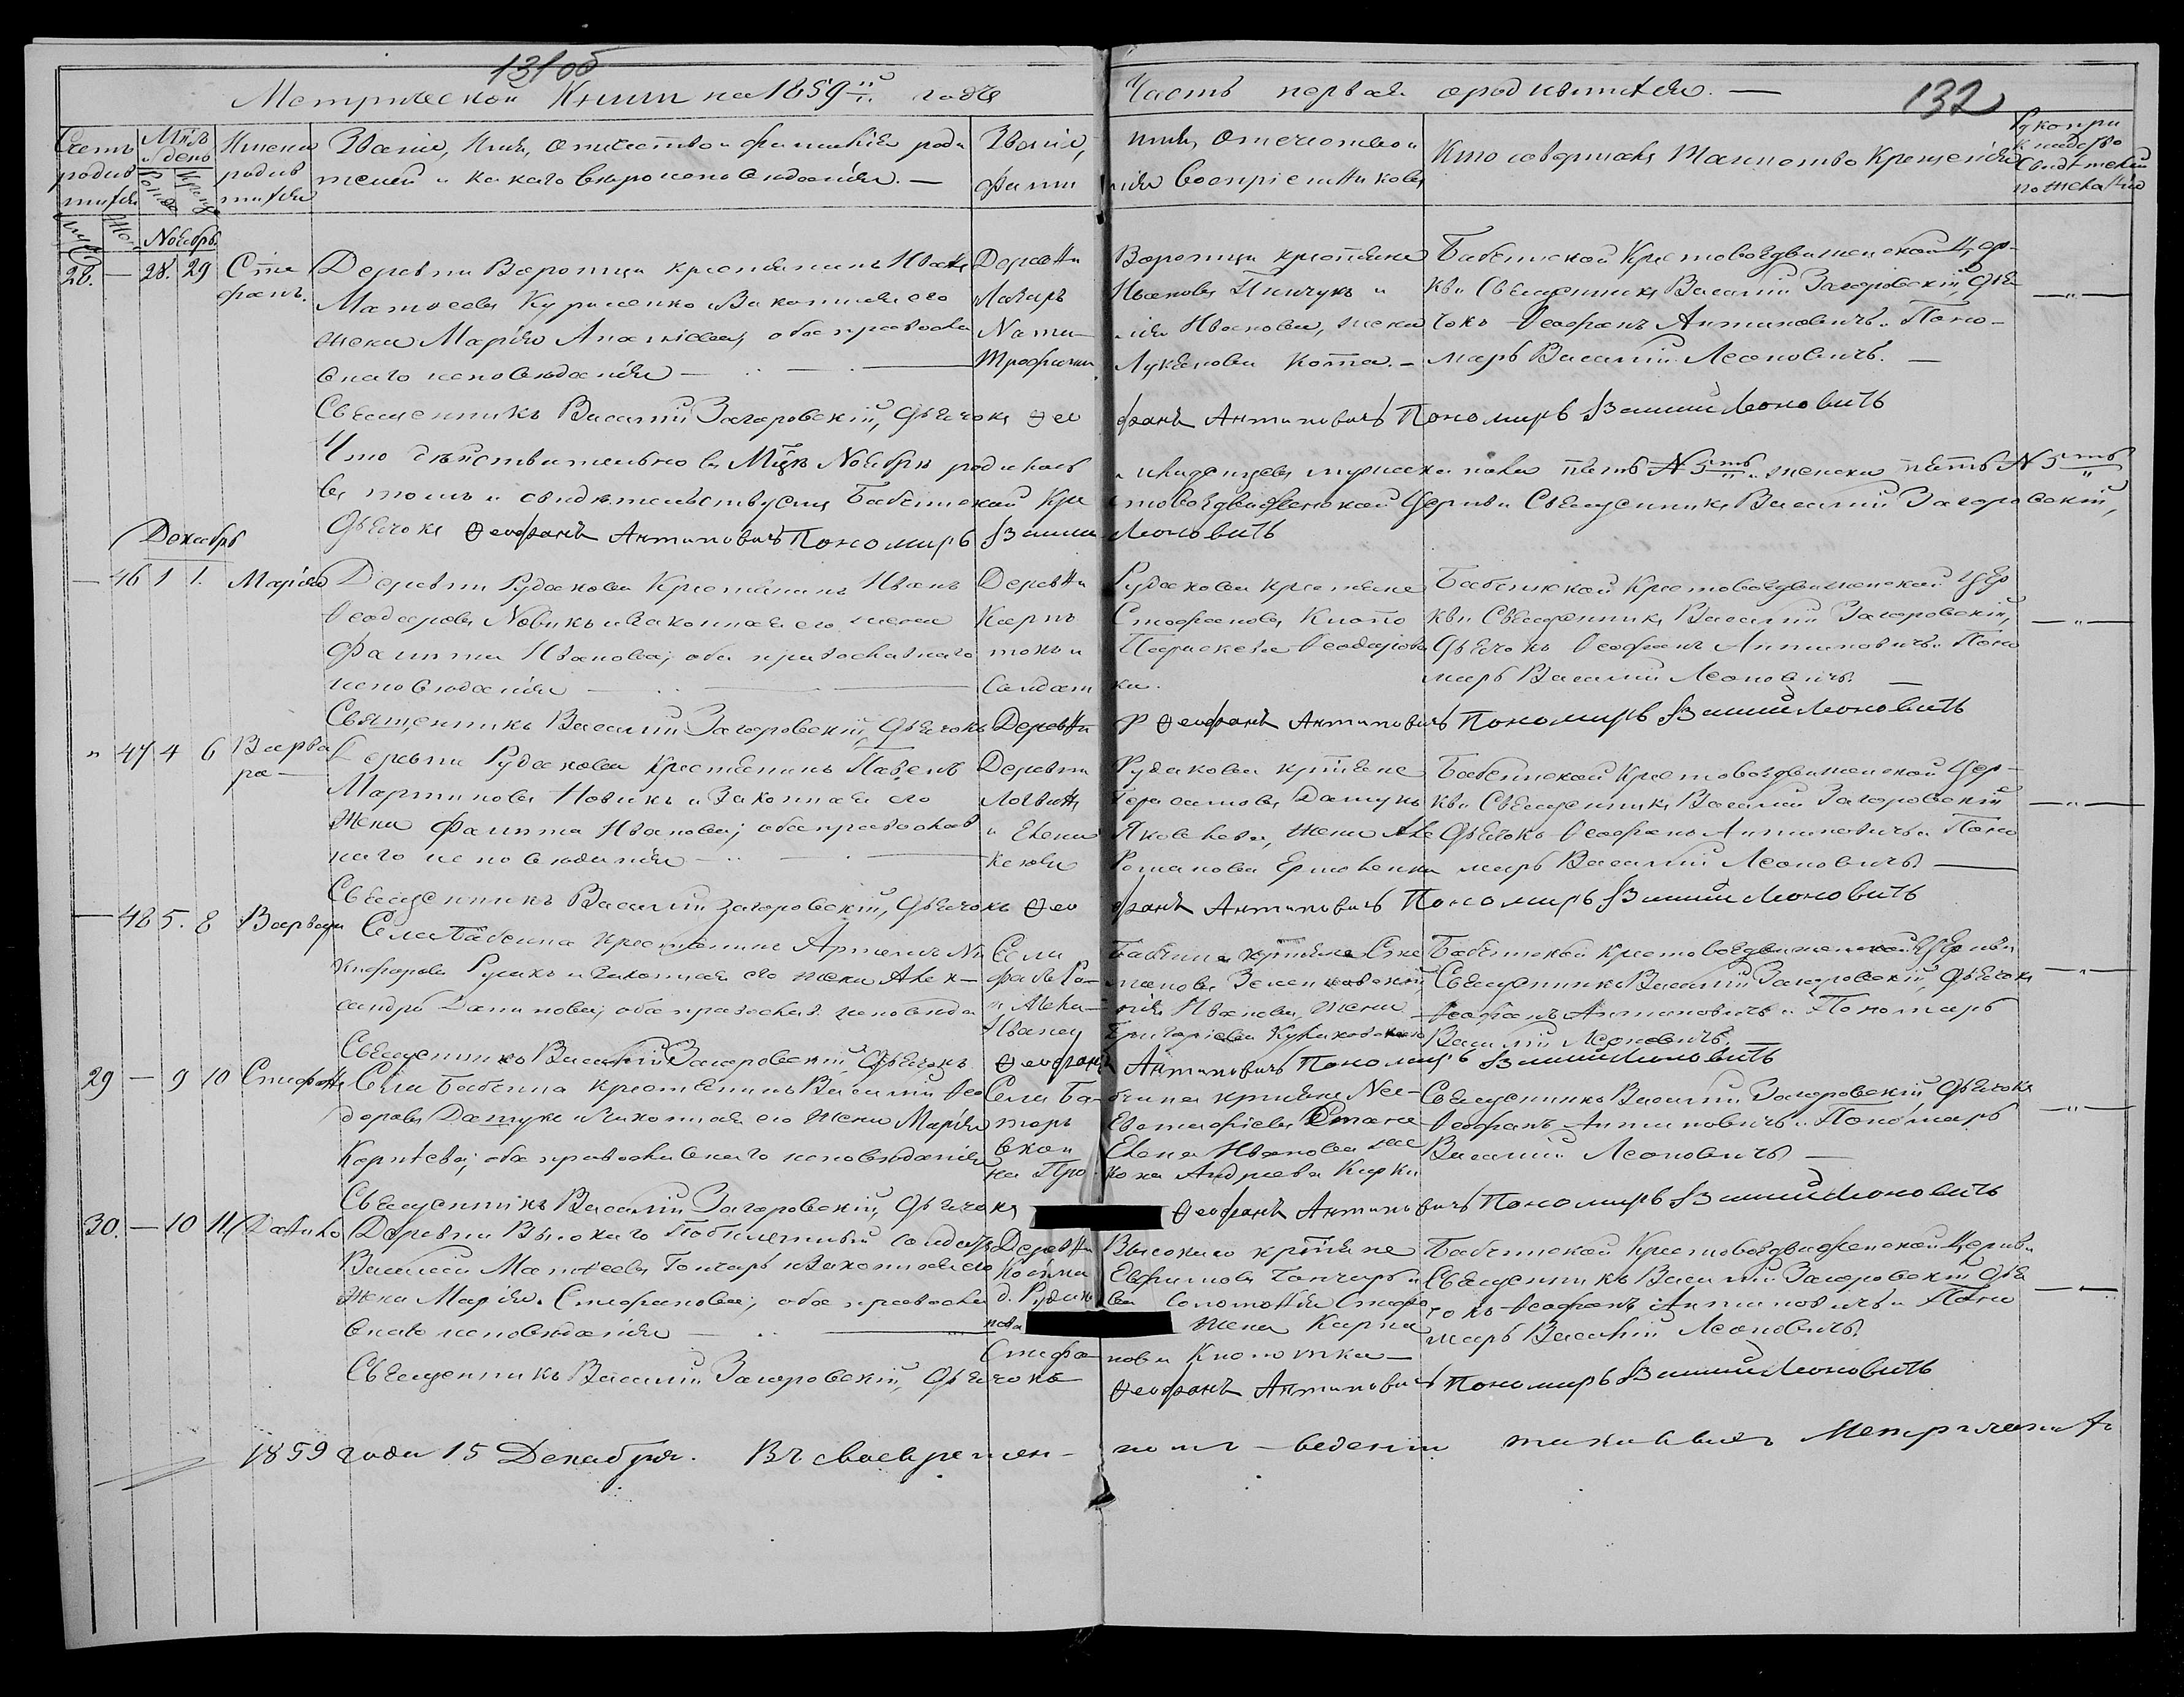 131 об
Метрической Книги на 1859й годъ Часть первая о родившихся. — 132
Счетъ родив шихся
Муж. Жен.
Мѣсъ и день
Рожде Крещ
Имена родив шихся
Званіе, Имя, отчество и фамилія роди
телей и какого вѣроисповѣданія. —
Званіе, имя, отчество и
фами лія Воспріемниковъ
Кто совершалъ Таинство Крещенія
Рукопри кладство Свидѣтелей по желанію
Ноябрь.
28. — 28. 29 Сте фанъ.
Деревни Воротци крестьянинъ Иванъ
Матѳеевъ Куриленко и Законная его
жена Марія Ананіева, оба правосла
внаго исповѣданія —
Деревни Воротци крестьяне
Лазарь Ивановъ Пинчукъ и
Ната лія Иванова, жена
Трофима Лукьянова Кота. —
Бабчинской Крестовоздвиженской Цер-
кви Священникъ Василій Загоровскій, Дья
чокъ Ѳеофанъ Антиповичъ и Поно-
марь Василій Леоновичъ. —
Священникъ Василій Загоровскій, Дьячокъ Ѳеофанъ Антиповичъ Пономарь Василій Леоновичъ
Что дѣйствительно въ Мцѣ Ноябрѣ родилось младенцевъ мужеска пола пять №5ть и женска пять №5ть
въ томъ и свидѣтельствуемъ Бабчинской Крестовоздвиженской Церкви Священникъ Василій Загоровскій,
Дьячокъ Ѳеофанъ Антиповичъ Пономарь Василій Леоновичъ
Декабрь
— 46 1 1. Марія
Деревни Рудакова Крестьянинъ Иванъ
Ѳеодоровъ Новикъ и Законная его жена
Фаина Иванова; оба православнаго
исповѣданія —
Деревни Рудакова крестьяне
Карпъ Стефановъ Кното
токъ и Параскева Ѳеодорова
Солдат ка.
Бабчинской Крестовоздвиженской Цер
кви Священникъ Василій Загоровскій,
Дьячокъ Ѳеофанъ Антиповичъ и Поно
марь Василій Леоновичъ. —
Священникъ Василій Загоровскій, Дьячокъ Деревни Р Ѳеофанъ Антиповичъ Пономарь Василій Леоновичъ
" 47 4 6 Варва ра —
Деревни Рудакова Крестьянинъ Павелъ
Мартиновъ Новикъ и Законная его
Жена Фаина Иванова; оба православ
наго исповѣданія —
Деревни Рудакова крѣстьяне
Логвинъ Герасимовъ Дашукъ
и Елена Яковлева, жена Але
ксѣя Романова Ермоленка
Бабчинской Крестовоздвиженской Цер-
кви Священникъ Василій Загоровскій
Дьячокъ Ѳеофанъ Антиповичъ и Поно
марь Василій Леоновичъ. —
Священникъ Василій Загоровскій, Дьячокъ Ѳеофанъ Антиповичъ Пономарь Василій Леоновичъ
— 48 5. 8 Варвара
Села Бабчина Крестьянинъ Артемъ Ни
кифоровъ Рудикъ и Законная его жена Алек-
сандра Данилова; оба православ. исповѣда
Села Бабчина крстьяне Сте
фанъ Ро- мановъ Зеленковскій,
и Ивановна, жена
Григоріева Куликовскаго
Бабчинской Крестовоздвиженской Церкви
Священникъ Василій Загоровскій, Дьячокъ
Ѳеофанъ Антиповичъ и Пономарь
Василій Леоновичъ. —
Священникъ Василій Загоровскій, Дьячокъ Ѳеофанъ Антиповичъ Пономарь Василій Леоновичъ
29 — 9 10 Стефанъ
Села Бабчина крестьянинъ Василій Ѳео
доровъ Дашукъ и Законная его Жена Марія
Корнѣева; оба православнаго исповѣданія
Села Ба- бчина крстьяне Нес-
торъ Евтихіевъ
Елена Иванова
на Про кона Андреева
Священникъ Василій Загоровскій Дьячокъ
Ѳеофанъ Антиповичъ и Пономарь
Василій Леоновичъ —
Священникъ Василій Загоровскій, Дьячокъ Ѳеофанъ Антиповичъ Пономарь Василій Леоновичъ
30. — 10 11 Данило
Деревни Высокаго безсрочный солдатъ
Василій Матѳеевъ Гончаръ и Законная его
Жена Марія Стефанова; оба правосла
внаго исповѣданія —
Деревни Высокаго крстьяне
Косьма Евфимовъ Гончаръ и
д. Рудакова Соломонія Стефа
нова жена Карпа
Стефа- нова Кнототка —
Бабчинской Крестовоздвиженской Церкви
Священникъ Василій Загоровскій Дья
чокъ Ѳеофанъ Антиповичъ и Поно
марь Василій Леоновичъ.
Священникъ Василій Загоровскій, Дьячокъ Ѳеофанъ Антиповичъ Пономарь Василій Леоновичъ
1859 года 15 Декабря. Въ своевремен- номъ ведении